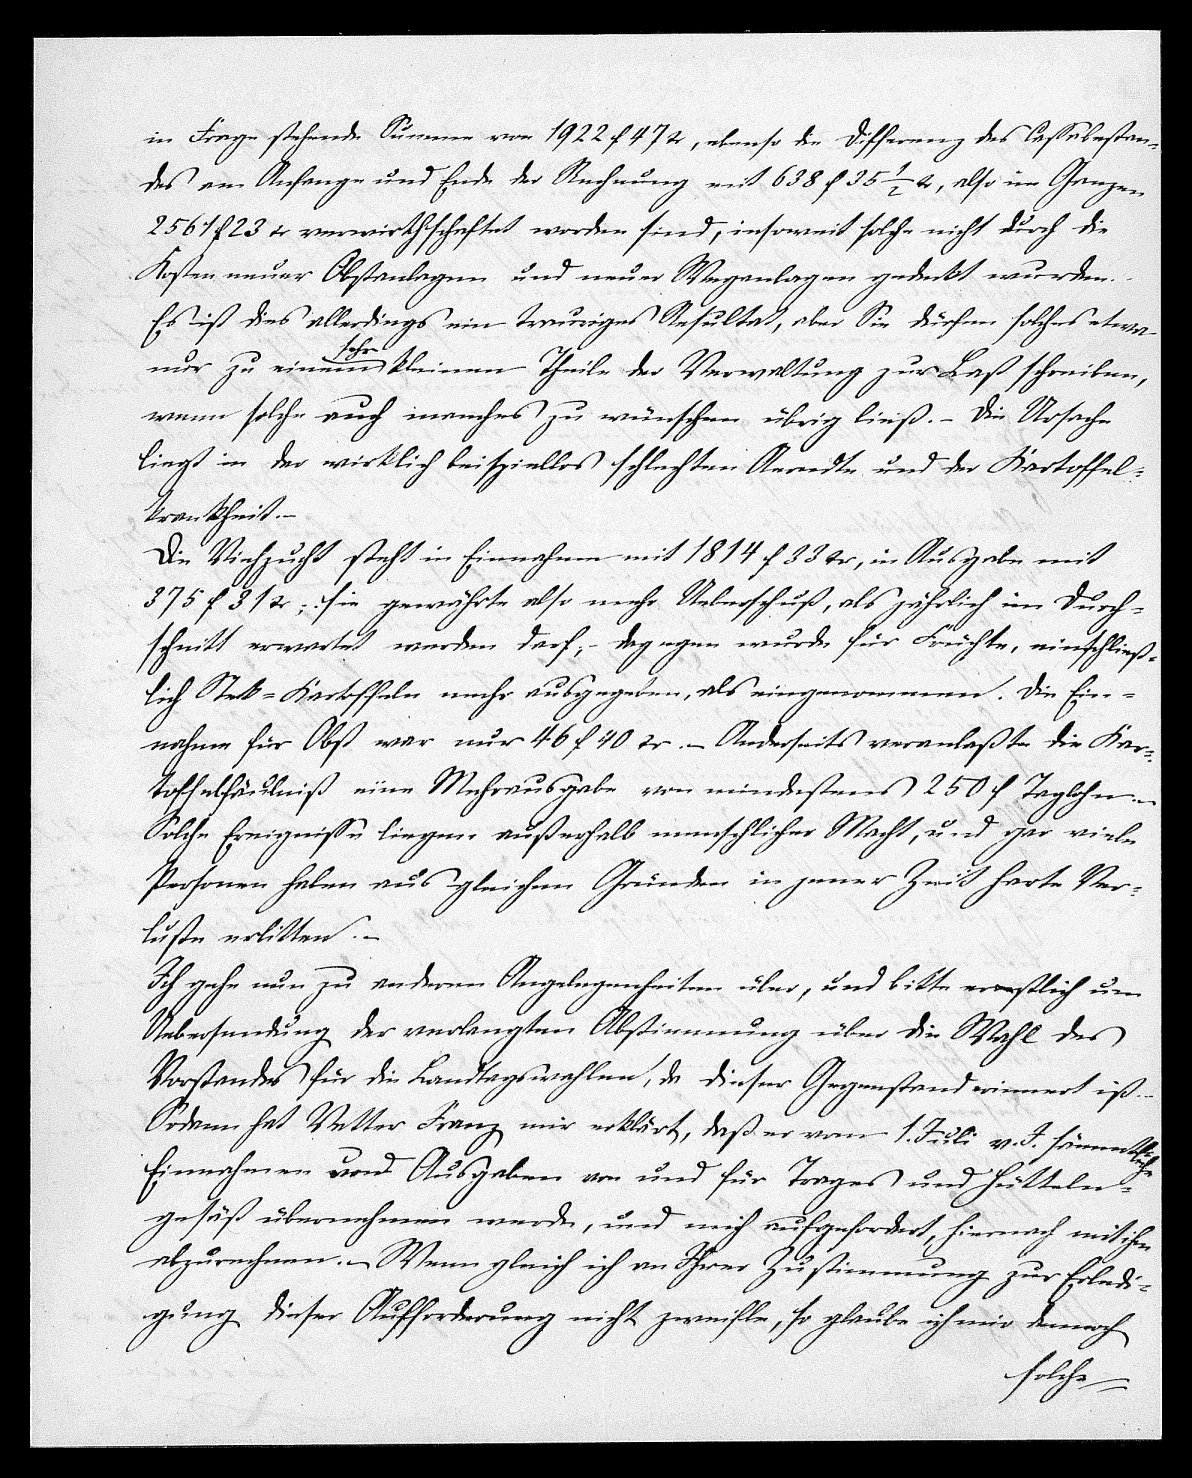 in Frage stehende Summe von 1922 f 47 xr, ebenso die Differenz des Cassabestan-
des am Anfange und Ende der Rechnung mit 638 f 35 1/2 xr, also im Ganzen
2561 f 23 xr verwirthschaftet worden sind, insoweit solche nicht durch die
Kosten neuer Obstanlagen und neuer Weganlagen gedeckt wurden.
Es ist dies allerdings ein trauriges Resultat, aber Sie dürfen solches etwa
nur zu einem sehr kleinen Theile der Verwaltung zur Last schreiben,
wenn solche auch manches zu wünschen übrig ließ. – Die Ursache
liegt in der wirklich beispiellos schlechten Aerndte und der Kartoffel-
krankheit. –
Die Viehzucht steht in Einnahme mit 1814 f 33 xr, in Ausgabe mit
375 f 31 xr; sie gewährte also mehr Ueberschuß, als jährlich im Durch-
schnitt erwartet werden darf; – dagegen wurde für Früchte, einschließ-
lich Steck=Kartoffeln mehr ausgegeben, als eingenommen. Die Ein-
nahme für Obst war nur 46 f 40 xr. – Anderseits veranlaßte die Kar-
toffelfäulniß eine Mehrausgabe von mindestens 250 f Taglohn. –
Solche Ereignisse liegen außerhalb menschlicher Macht, und gar viele
Personen haben aus gleichen Gründen in jener Zeit harte Ver-
luste erlitten. –
Ich gehe nun zu anderen Angelegenheiten über, und bitte ernstlich um
Uebersendung der verlangten Abstimmung über die Wahl des
Vorstandes für die Landtagswahlen, da dieser Gegenstand erinnert ist. –
Sodann hat Vetter Franz mir erklärt, daß er vom 1. Juli v. J. sämmtliche
Einnahmen und Ausgaben von und für Trages und Hütteln-
gesäß übernehmen werde, und mich aufgefordert, hiernach mit ihm
abzurechnen. – Wenn gleich ich an Ihrer Zustimmung zur Erledi-
gung dieser Aufforderung nicht zweifle, so glaube ich mir dennoch
solche